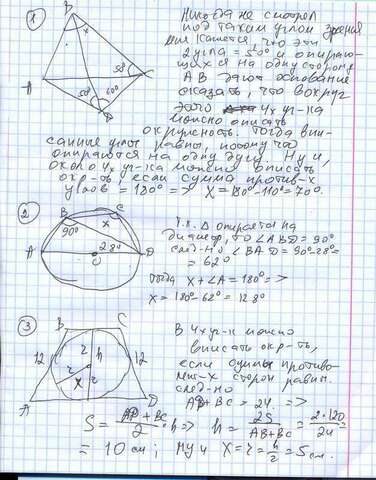 ①
B
x
A
50°
50°
60°
Никогда не смотрел
под таким углом зрения
Мне кажется, что эти
2 угла = 50° и опираю-
щихся на одну сторону
АВ дают основание
сказать, что вокруг
этого 4х уг-ка
можно описать
окружность. Тогда впи-
санные углы равны, потому что
опираются на одну дугу. Ну и,
около 4х уг-ка можно описать
окр-ть, если сумма против-х
углов = 180° => X = 180°-110° = 70°.
②
B
C
90°
x
A
28°
D
O
Т.к. Δ опирается на
диаметр, то ∠ABD = 90°
след-но ∠BAD = 90°-28° =
= 62°
тогда x + ∠A = 180° =>
x = 180°-62° = 128°
③
B
C
12
r
h
12
r
x
r
A
D
В 4х уг-к можно
вписать окр-ть,
если суммы противо-
сторон равны.
след-но
AD+BC = 24. =>
S = (AD+BC)/2 · h => h = 2S/(AD+BC) = 2·120/24 =
= 10 см; Ну и X = r = h/2 = 5 см.